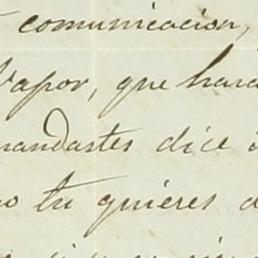 comunicacion,
Vapor, que hara
mandastes dice
tu quiéres